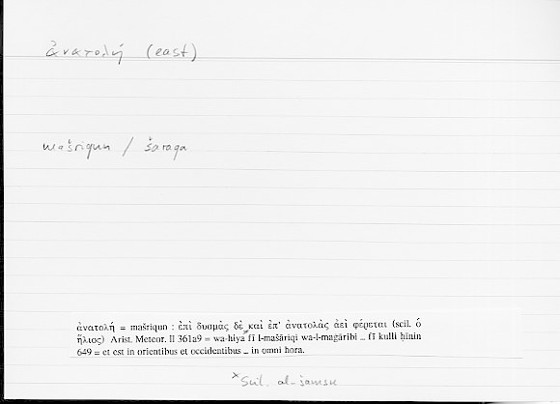 ἀνατολή (east)
mašriqun / šaraqa
ἀνατολή = mašriqun : ἐπὶ δυσμὰς δὲ καὶ ἐπ' ἀνατολὰς ἀεὶ φέρεται (scil. ὁ
ἥλιος) Arist. Meteor. II 361a9 = wa-hiya fī l-mašāriqi wa-l-maġāribi .. fī kulli ḥīnin
649 = et est in orientibus et occidentibus .. in omni hora.
× Scil. al-šamsu